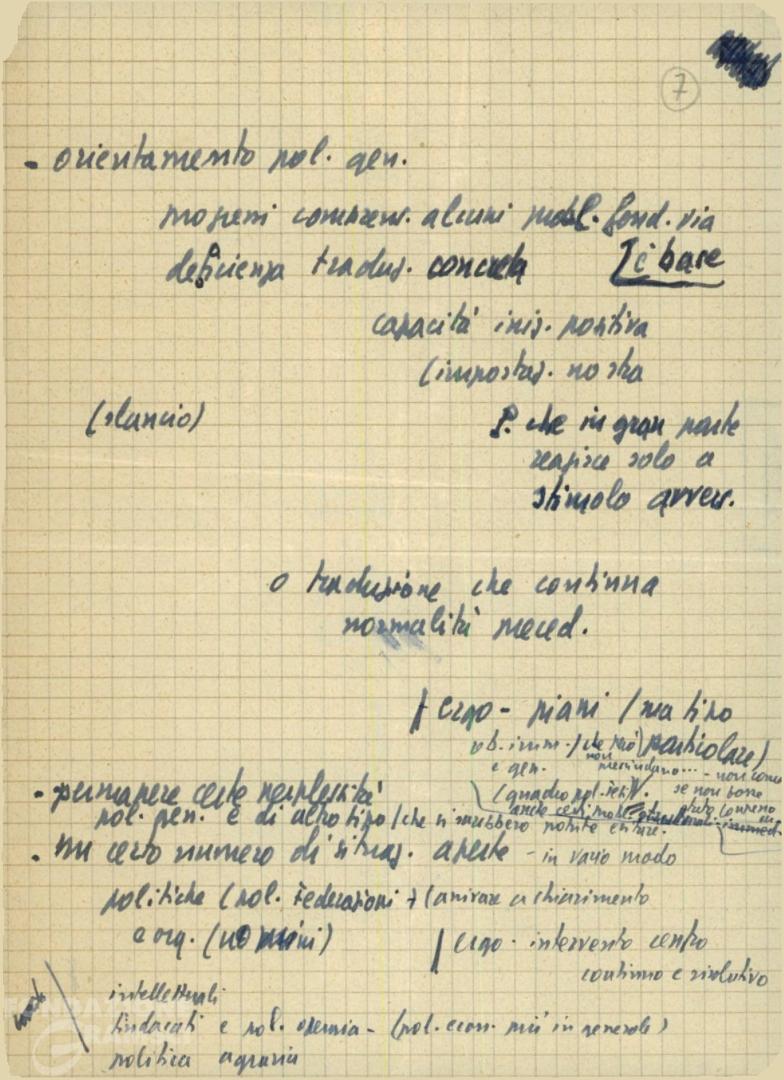 7
- orientamento pol. gen.
progressi comprens. alcuni probl. fond. via
deficienza traduz. concreta [è base
capacità iniz. positiva
(impostaz. nostra
(slancio)
P. che in gran parte
reagisce solo a
stimolo avvers.
o traduzione che continua
normalità preced.
| ergo - piani / ma tipo
ob. imm. / che però particolare)
non prescindano... - non come
e gen. se non fosse
(quadro pol.
- permanere certe perplessità
pol. gen. e di altro tipo / che si sarebbero potute evitare.
- un certo numero di situaz. aperte - in vario modo
politiche (pol. Federazioni + (arrivare a chiarimento
e org. (uomini) | ergo - intervento centro
continuo e risolutivo
intellettuali
sindacati e pol. operaia - (pol. econ. più in generale)
politica agraria